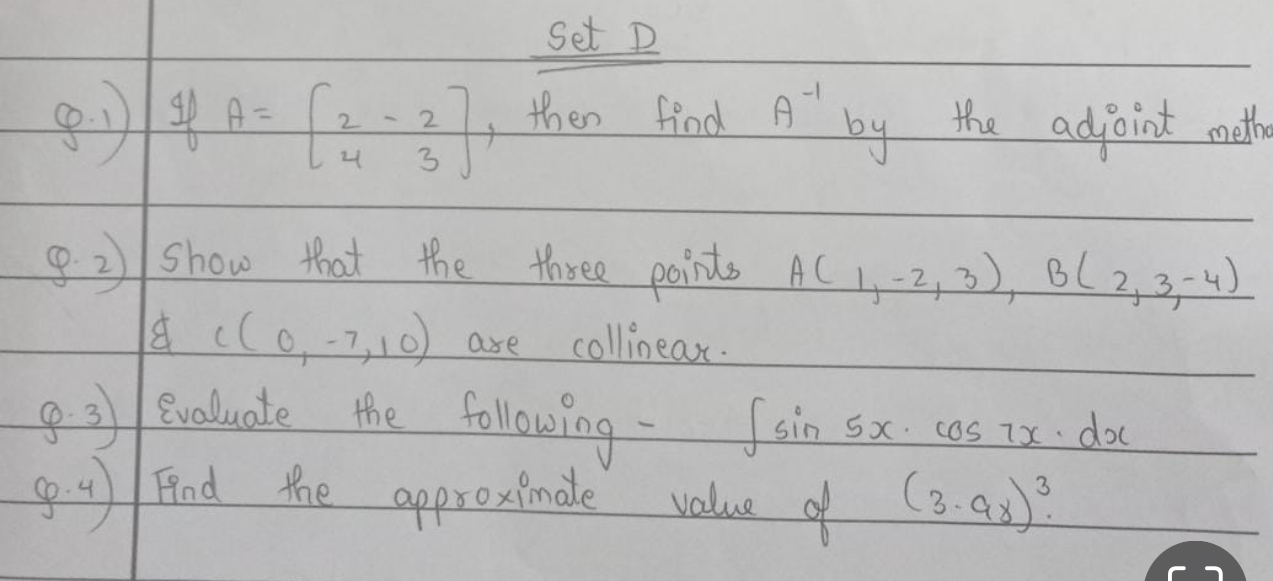 Set D
Q.1) If A = [ 2 -2 ], then find A⁻¹ by the adjoint metho
4 3
Q.2) Show that the three points A( 1, -2, 3), B( 2, 3, -4)
& C( 0, -7, 10) are collinear.
Q.3) Evaluate the following - ∫ sin 5x . cos 7x . dx
Q.4) Find the approximate value of (3.98)³.